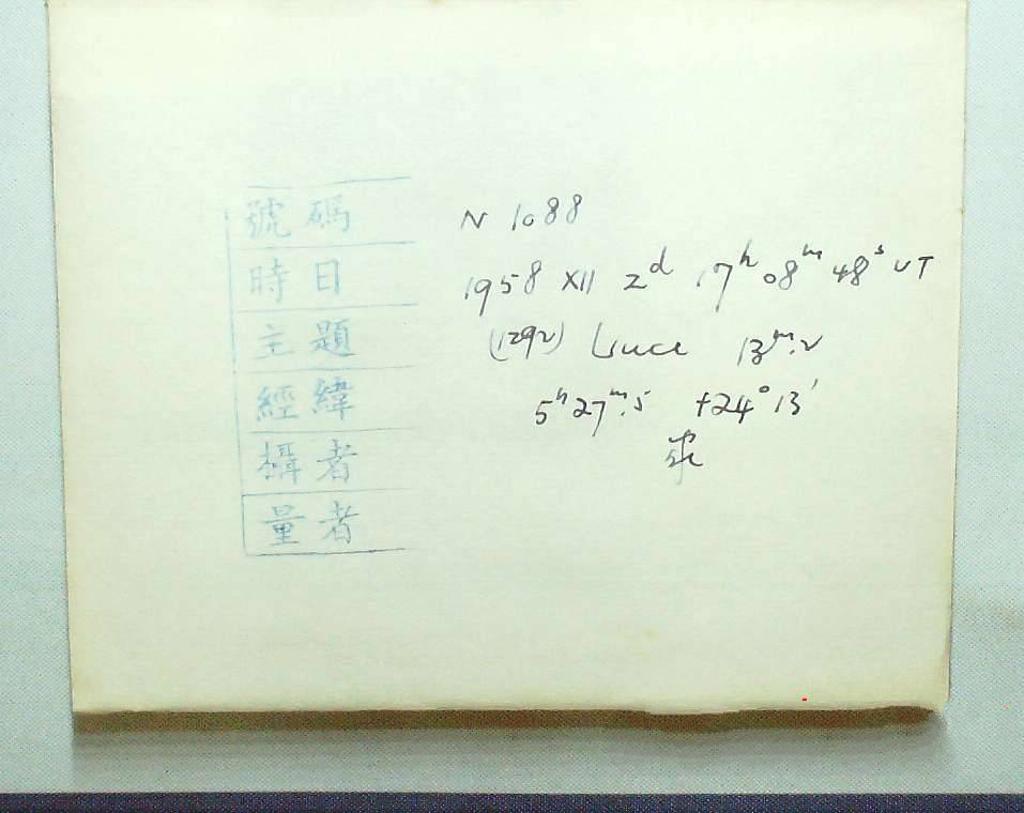 號碼 N 1088
時日 1958 XII 2d 17h 08m 48s UT
主題 (1292) Luce 13m.2
經緯 5h 27m.5 +24° 13'
攝者
量者